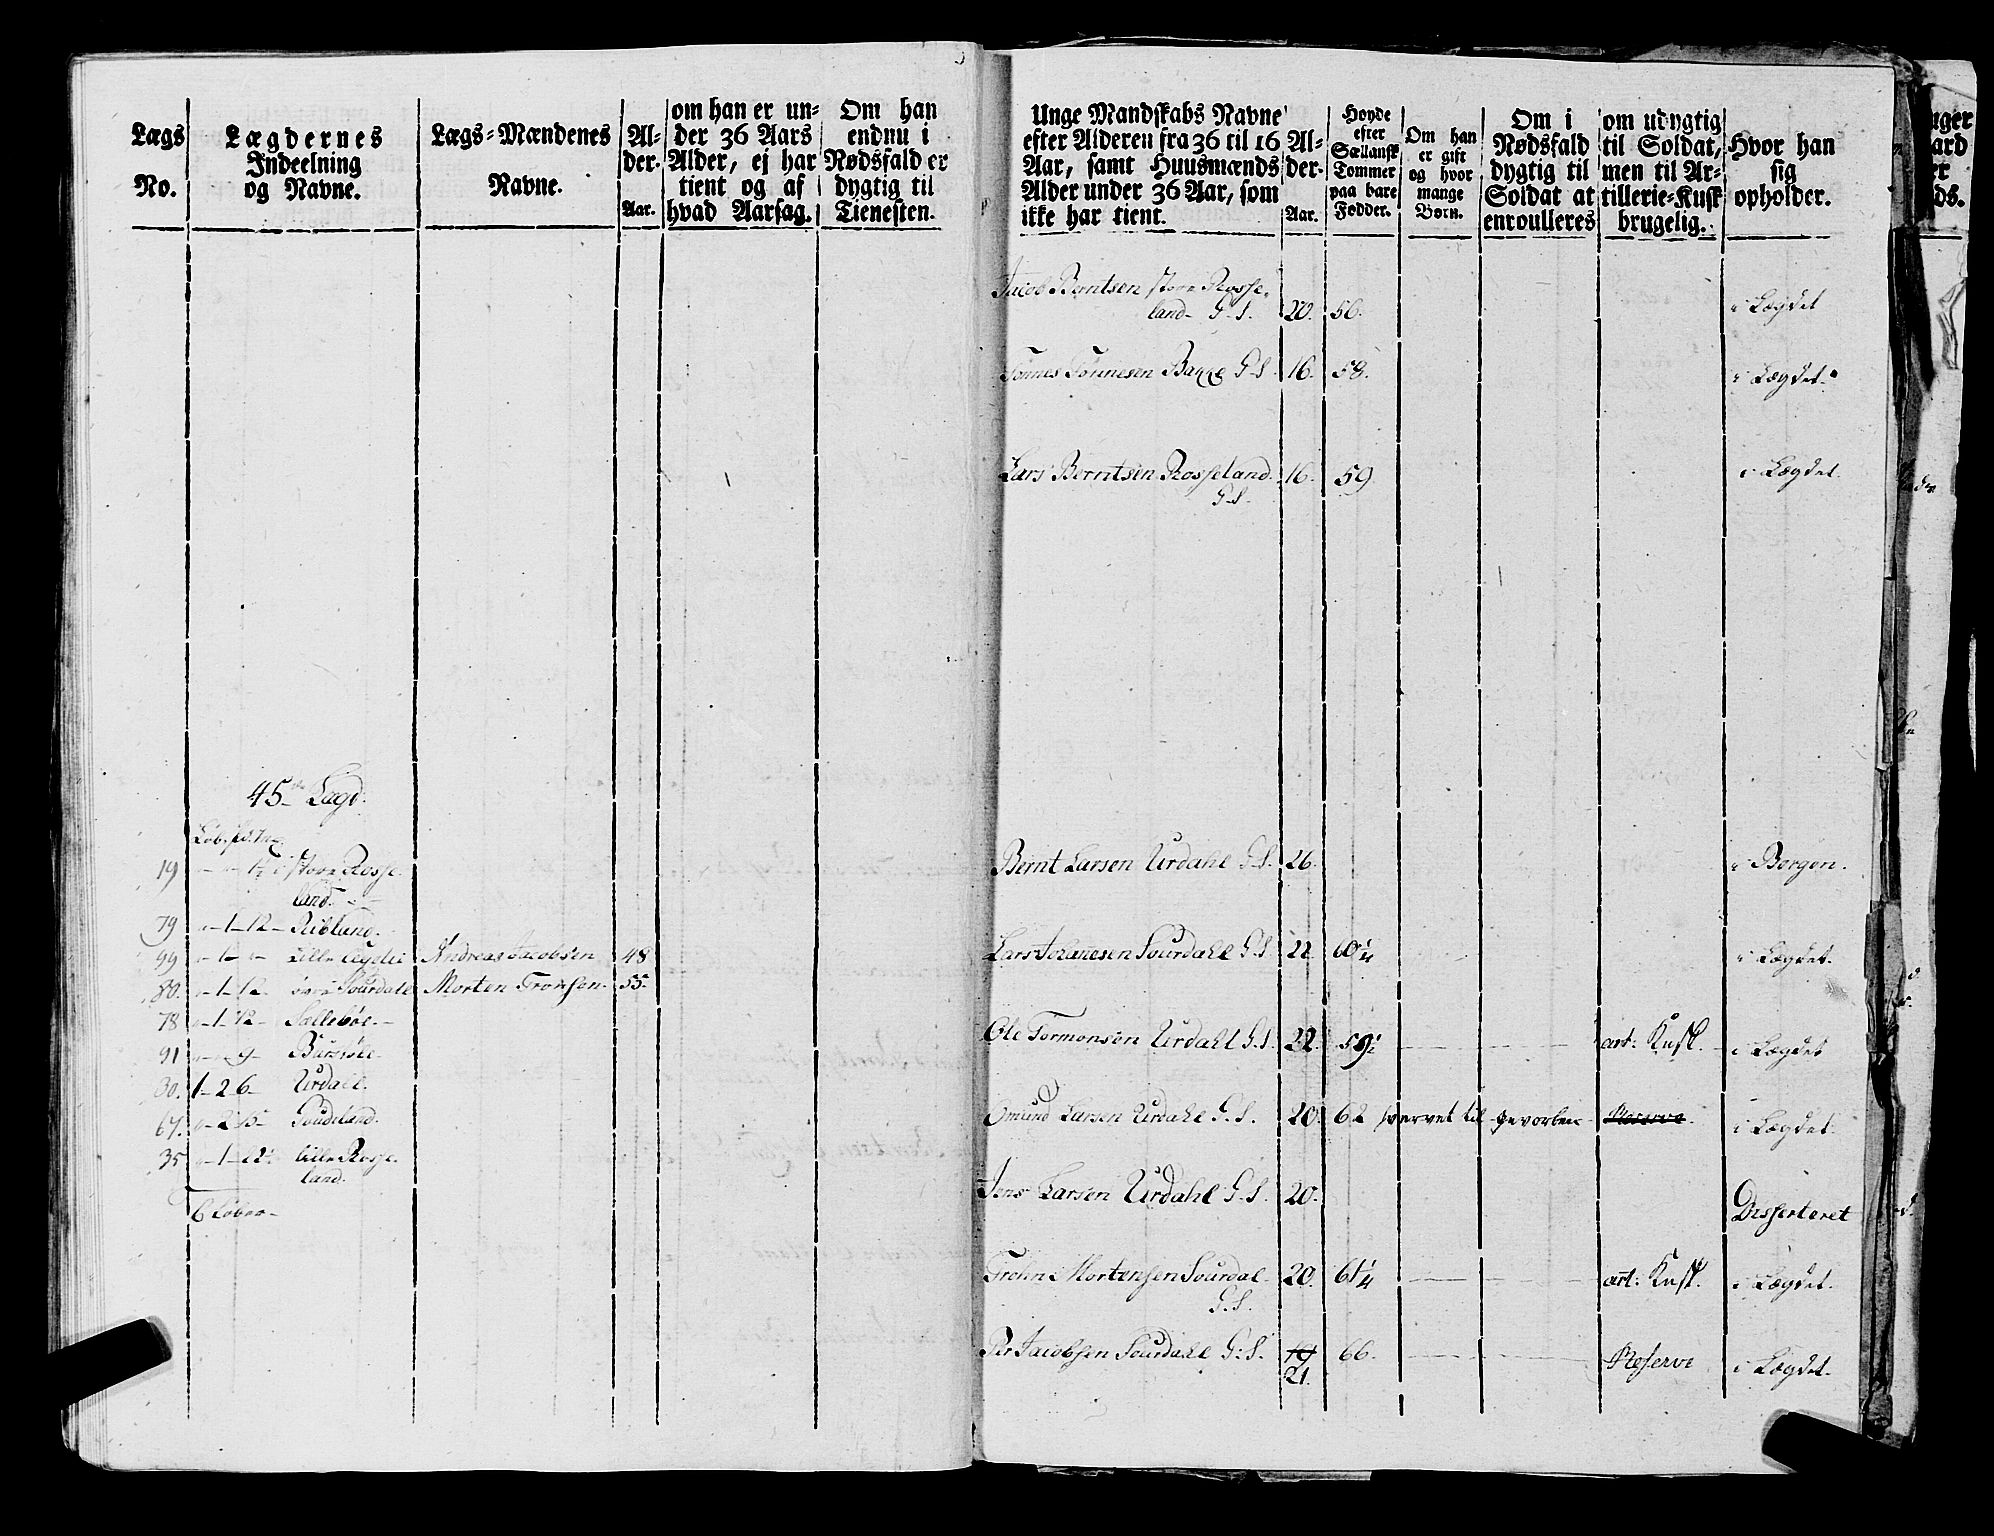 Lægs
No.
Lægdernes
Indeelning
og Navne.
Lægs-Mændenes
Navne.
Al-
der.
Aar.
om han er un-
der 36 Aars
Alder, ej har
tient og af
hvad Aarsag.
Om han
endnu i
Nødsfald er
dygtig til
Tienesten.
45 Lægd.
19 store Rosse-
land.
79 1 - 12 - Riblund.
99 Lille Andreas Jacobsen 48
80. 1 - 12. Sourdale Morten Tronsen. 55.
78 1 - 12 - Sællebøe.
91 9 -
30. 1 - 2 6 - Urdahl.
67. 2
35 1 - 22. lille Rosse-
land.
6 Løber
Unge Mandskabs Navne
efter Alderen fra 36 til 16
Aar, samt Huusmænds
Alder under 36 Aar, som
ikke har tient.
Al-
der.
Aar.
Høyde
efter
Sællansk
Tommer
paa bare
Fødder.
Om han
er gift
og hvor
mange
Børn.
Om i
Nødsfald
dygtig til
Soldat at
enroulleres
om udygtig
til Soldat,
men til Ar-
tillerie-Kusk
brugelig.
Hvor han
sig
opholder.
Jacob Berntsen store Rosse-
land G.S. 20. 56. i Lægdet
Tønnes Tønnesen Bakke G.S. 16. 58. i Lægdet.
Lars Berntsen Rosseland 16. 59 i Lægdet.
G.S.
Bernt Larsen Urdahl G.S. 26. i Bergen.
Lars Johannesen Sourdahl G.S. 22 60 1/4 i Lægdet.
Ole Tormonsen Urdahl G.S. 22. 59 art: Kusk. i Lægdet
Omund Larsen Urdahl G.S. 20. 62 hervet til gevorben Reserve. i Lægdet
Jens Larsen Urdahl G.S. 20. Desserteret
Trohn Mortensen Sourdal 20. 61 1/4 art: Kusk. i Lægdet.
G.S.
Per Jacobsen Sourdahl G.S. 19 66. Reserve i Lægdet.
21.